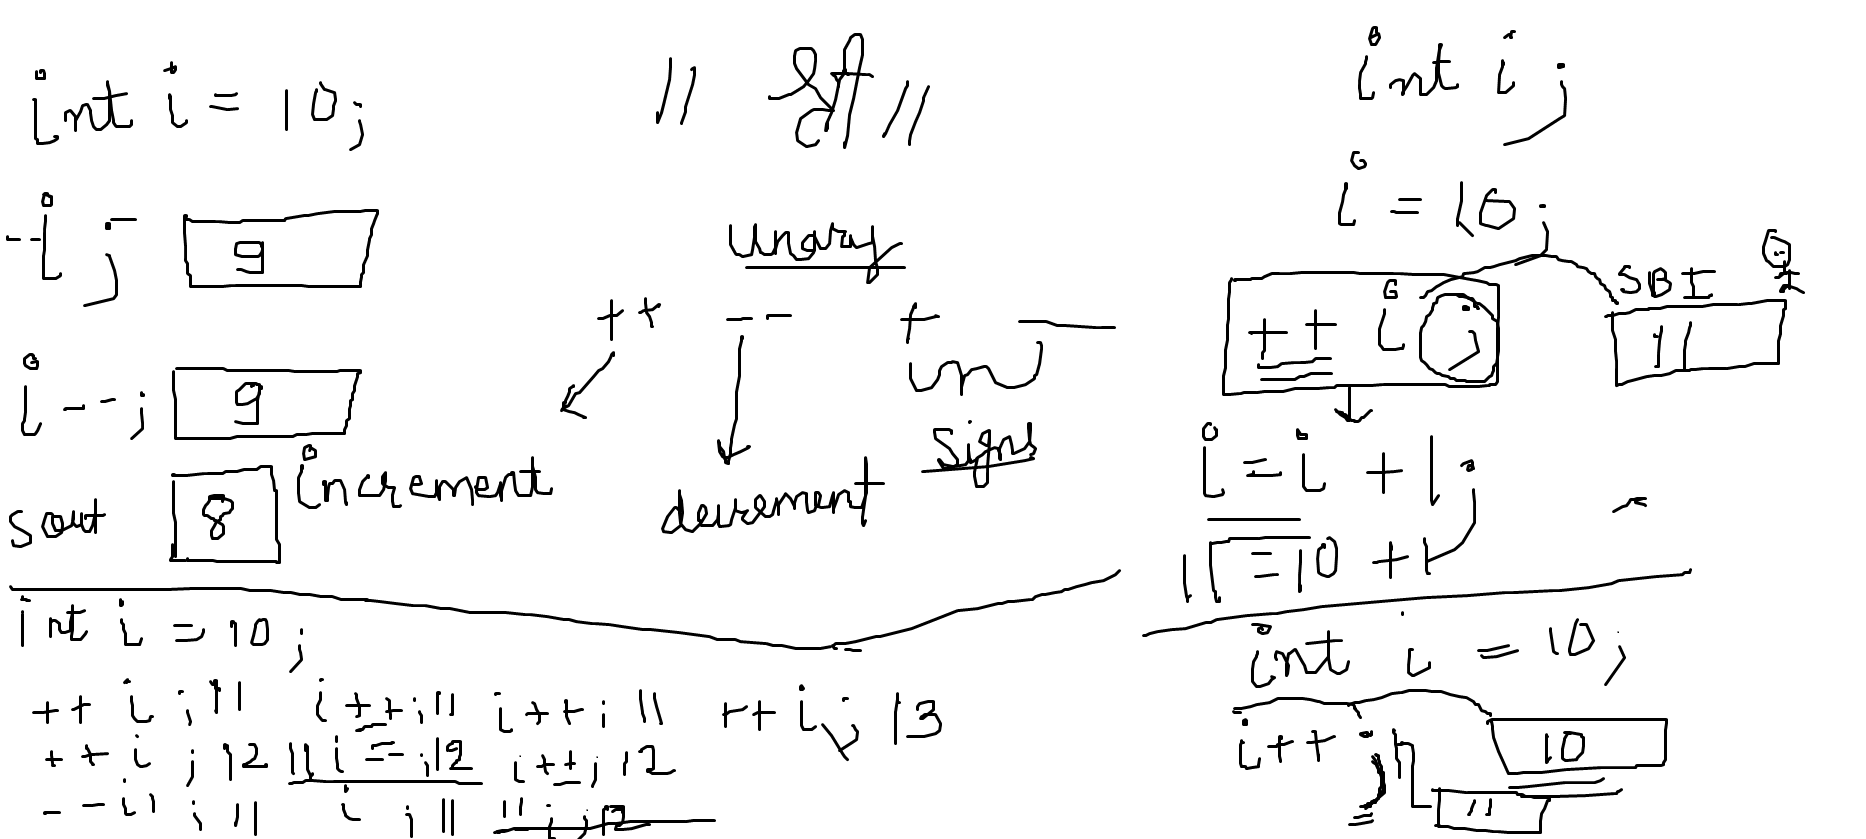 int i = 10;
--i; 9
i--; 9
sout 8
// //
unary
++ -- + -
increment
decrement
signs
int i;
i = 10;
++ i;
SBI
11
i = i + 1;
11 = 10 + 1
int i = 10;
++ i ; 11 i++; 11 i++; 11 ++i; 13
++ i ; 12 i--; 12 i++; 12
--i ; 11 i ; 11
int i = 10;
i++; 10
11